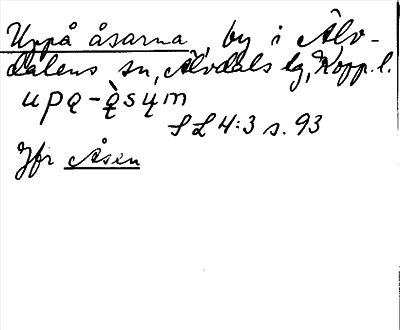 Uppå åsarna, by i Älv-
dalens sn, Älvdals tg, Kopp. l.
upą-ą̀sųm
SL 4:3 s. 93
Jfr Åsen